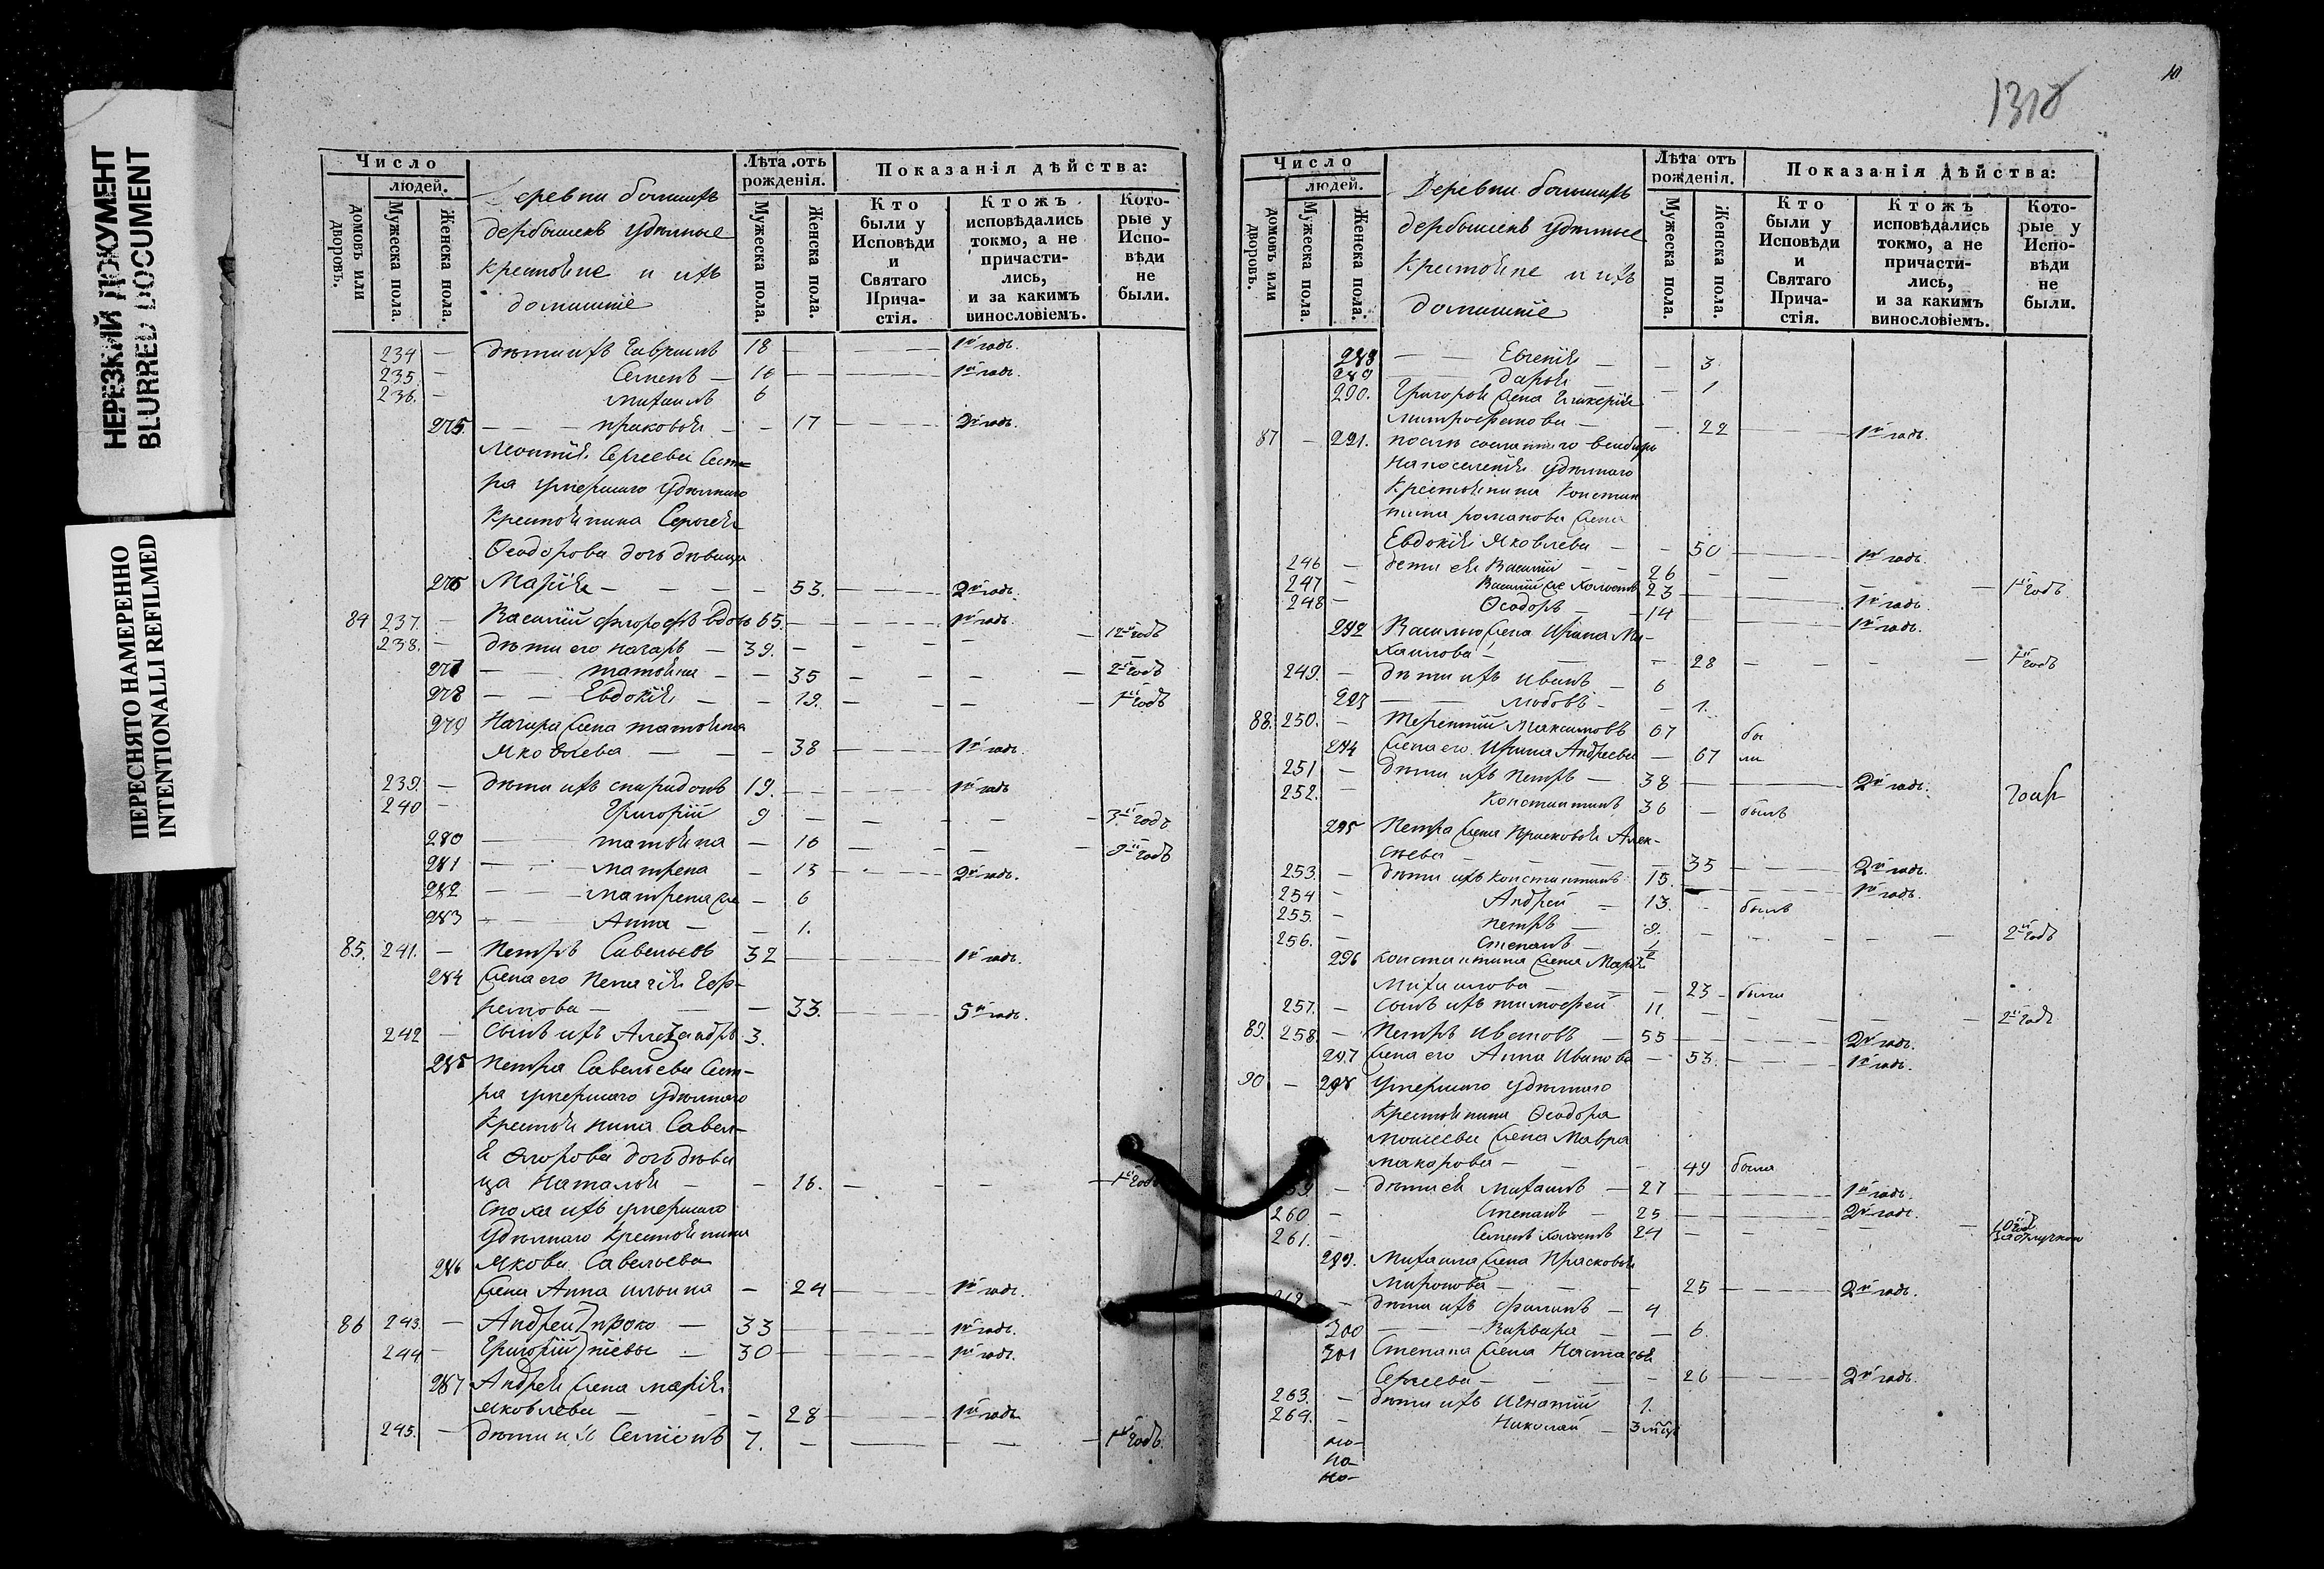 НЕРЕЗКИЙ ДОКУМЕНТ
BLURRED DOCUMENT
ПЕРЕСНЯТО НАМЕРЕННО
INTENTIONALLI REFILMED
Число
людей.
домовъ или дворовъ.
Мужеска пола.
Женска пола.
Деревни большихъ
дербышевъ удѣльные
крестьяне и ихъ
домашніе
Лѣта отъ рожденія.
Мужеска пола.
Женска пола.
Показанія дѣйства:
Кто были у Исповѣди и Святаго Причастія.
Ктожъ исповѣдались токмо, а не причастились, и за какимъ винословіемъ.
Которые у Исповѣди не были.
234 — дѣти ихъ Гавріилъ 18 — 1й годъ.
235. — Семенъ — 16 — 1й годъ.
236. — Михаилъ 6
275. — прасковья — 17 — 2й годъ.
Леонтія Сергеева Сест-
ра умершаго удѣльнаго
крестьянина Сергея
Ѳеодорова дочь дѣвица
276 Марія — 53. — 2й годъ.
84 237. — Василій вдовъ 65. — 1й годъ.
238. — дѣти его назаръ — 39. — 12й годъ
277 — татьяна — 35 — 2й годъ
278 — Евдокія — 19. — 1й годъ
279 Назара жена татьяна
Яковлева — 38 — 1й годъ.
239. — дѣти ихъ спиридонъ 19. — 1й годъ
240 — Григорій 9 — 3й годъ
280 — татьяна — 16 — 3й годъ
281 — матрена — 13 — 2й годъ.
282 — матрена же — 6
283 — Анна — 1.
85. 241. — Петръ Савельевъ 32 — 1й годъ.
284 жена его Пелагія Еф-
ремова — 33. — 5й годъ.
242 — сынъ ихъ Александръ 3.
285 Петра Савельева Сест-
ра умершаго удѣльнаго
Крестьянина Савел-
я дочь дѣви
ца Наталья — 16. — 1й годъ
Сноха ихъ умершаго
удѣльнаго крестьянина
286 Якова Савельева
жена Анна ильина — 24 — 1й годъ.
86 243. — Андрей проко — 33 — 1й годъ.
244 — Григорій піевы — 30 — 1й годъ.
287 Андрея жена марія
яковлева — 28 — 1й годъ
245. — дѣти их Семіонъ 7. — 1й годъ.
10
1310
Число
людей.
домовъ или дворовъ.
Мужеска пола.
Женска пола.
Деревни большихъ
дербышевъ удѣльные
Крестьяне и ихъ
домашніе
Лѣта отъ рожденія.
Мужеска пола.
Женска пола.
Показанія дѣйства:
Кто были у Исповѣди и Святаго Причастія.
Ктожъ исповѣдались токмо, а не причастились, и за какимъ винословіемъ.
Которые у Исповѣди не были.
288 — Евгенія — 3.
289 — дарья — 1
290. Григорья жена Гликерія
митрофанова — 22 — 1й годъ.
87 — 291. послѣ сосланнаго всибирь
на поселенія удѣльнаго
Крестьянина Констан
тина романова жена
Евдокія Яковлева — 50 — 1й годъ.
246 — дети ея Василій — 26 — 1й годъ
247 — Василій же холостъ 23 — 1й годъ.
248 — Ѳеодоръ — 14 — 1й годъ.
292 Василью жена Ирина Ми-
хаилова — 28 — 1й годъ
249. — дѣти ихъ Иванъ — 6
293 — Любовь — 1.
88. 250. — Терентій Максимовъ 67 бы
294 жена его Ирина Андреева — 67 ли
251 — дѣти ихъ Петръ — 38 — 2й годъ.
252. — Константинъ 36 — былъ
295 Петра жена Прасковья Алек-
сѣева — 35 — 2й годъ.
253. — дѣти ихъ Константинъ 15. — 1й годъ.
254 — Андрей — 13. — былъ
255. — петръ — 9. — 2й годъ
256. — Степанъ — 1/2
296 Константина жена Марія
Михаилова — 23 — была
257. — сынъ ихъ тимофей 11. — 2й годъ
89. 258. — Петръ Ивановъ — 55 — 2й годъ.
297 жена его Анна Иванова — 53. — 1й годъ.
90. — 298 умершаго удѣльнаго
Крестьянина Ѳеодора
моисеева жена Мавра
макарова — 49 была
59. — дѣти ея Михаилъ — 27 — 1й годъ.
260 — Степанъ — 25 — 2й годъ.
261. — Семенъ холостъ 24 — 10й годъ за отлучкою
299. Михаила жена Прасковья
Миронова — 25 — 2й годъ.
262 — дѣти ихъ филипъ — 4
300 — Варвара — 6.
301 Степана жена Настасья
Сергеева — 26 — 2й годъ.
263. — дѣти ихъ Игнатій 1.
264. — Николай — 3 мѣся